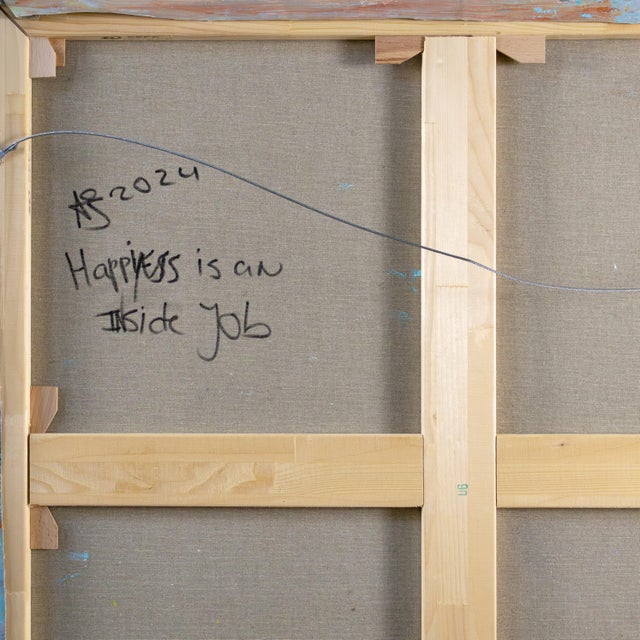 AS 2024
Happiness is an
Inside Job